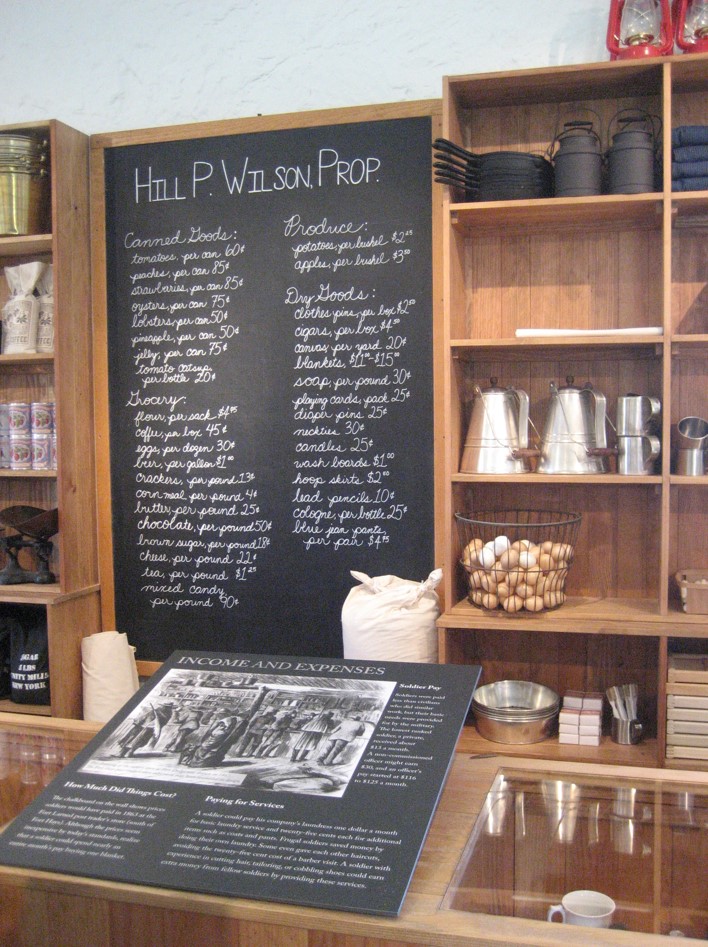 HILL P. WILSON, PROP.
Canned Goods:
tomatoes, per can 60¢
peaches, per can 85¢
strawberries, per can 85¢
oysters, per can 75¢
lobsters, per can 50¢
pineapple, per can 50¢
jelly, per can 75¢
tomato catsup,
per bottle 20¢
Grocery:
flour, per sack
coffee, per box 45¢
eggs, per dozen 30¢
beer, per gallon $1⁰⁰
crackers, per pound 13¢
corn meal, per pound 4¢
butter, per pound 25¢
chocolate, per pound 50¢
brown sugar, per pound 18¢
cheese, per pound 22¢
tea, per pound $1²⁵
mixed candy
per pound 90¢
Produce:
potatoes, per bushel $2²⁵
apples, per bushel $3⁵⁰
Dry Goods:
clothes pins, per box $2⁵⁰
cigars, per box $4⁵⁰
canvas, per yard 20¢
blankets, $11⁰⁰-$15⁰⁰
soap, per pound 30¢
playing cards, pack 25¢
diaper pins 25¢
neckties 30¢
candles 25¢
wash boards $1⁰⁰
hoop skirts $2⁰⁰
lead pencils 10¢
cologne, per bottle 25¢
blue jean pants,
per pair
NEW YORK
INCOME AND EXPENSES
Soldier Pay
Soldiers were paid
less than civilians
who did similar
work, but their basic
needs were provided
for by the military.
The lowest ranked
soldier, a private,
received about
$13 a month.
A non-commissioned
officer might earn
$30, and an officer's
pay started at $116
to $125 a month.
How Much Did Things Cost?
The chalkboard on the wall shows prices
soldiers would have paid in 1863 at the
Fort Larned post trader's store (south of
Fort Hays). Although the prices seem
inexpensive by today's standards, realize
that a soldier could spend nearly an
entire month's pay buying one blanket.
Paying for Services
A soldier could pay his company's laundress one dollar a month
for basic laundry service and twenty-five cents each for additional
items such as coats and pants. Frugal soldiers saved money by
doing their own laundry. Some even gave each other haircuts,
avoiding the twenty-five cent cost of a barber visit. A soldier with
experience in cutting hair, tailoring, or cobbling shoes could earn
extra money from fellow soldiers by providing these services.